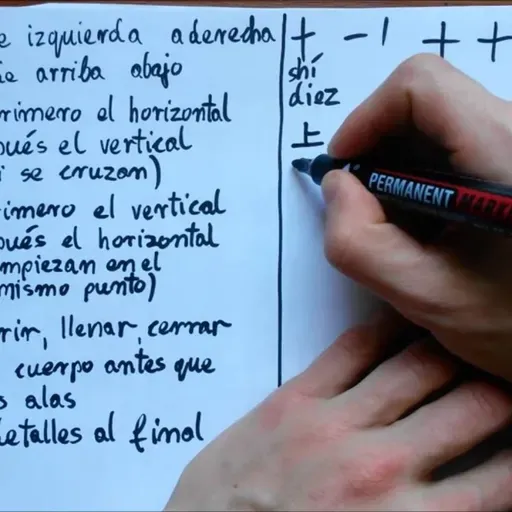 e izquierda a derecha
e arriba abajo
rimero el horizontal
ués el vertical
i se cruzan)
rimero el vertical
ués el horizontal
mpiezan en el
mismo punto)
rir, llenar, cerrar
cuerpo antes que
s alas
etalles al final
十 一 丨 十 十
shí
diez
上
PERMANENT MARK